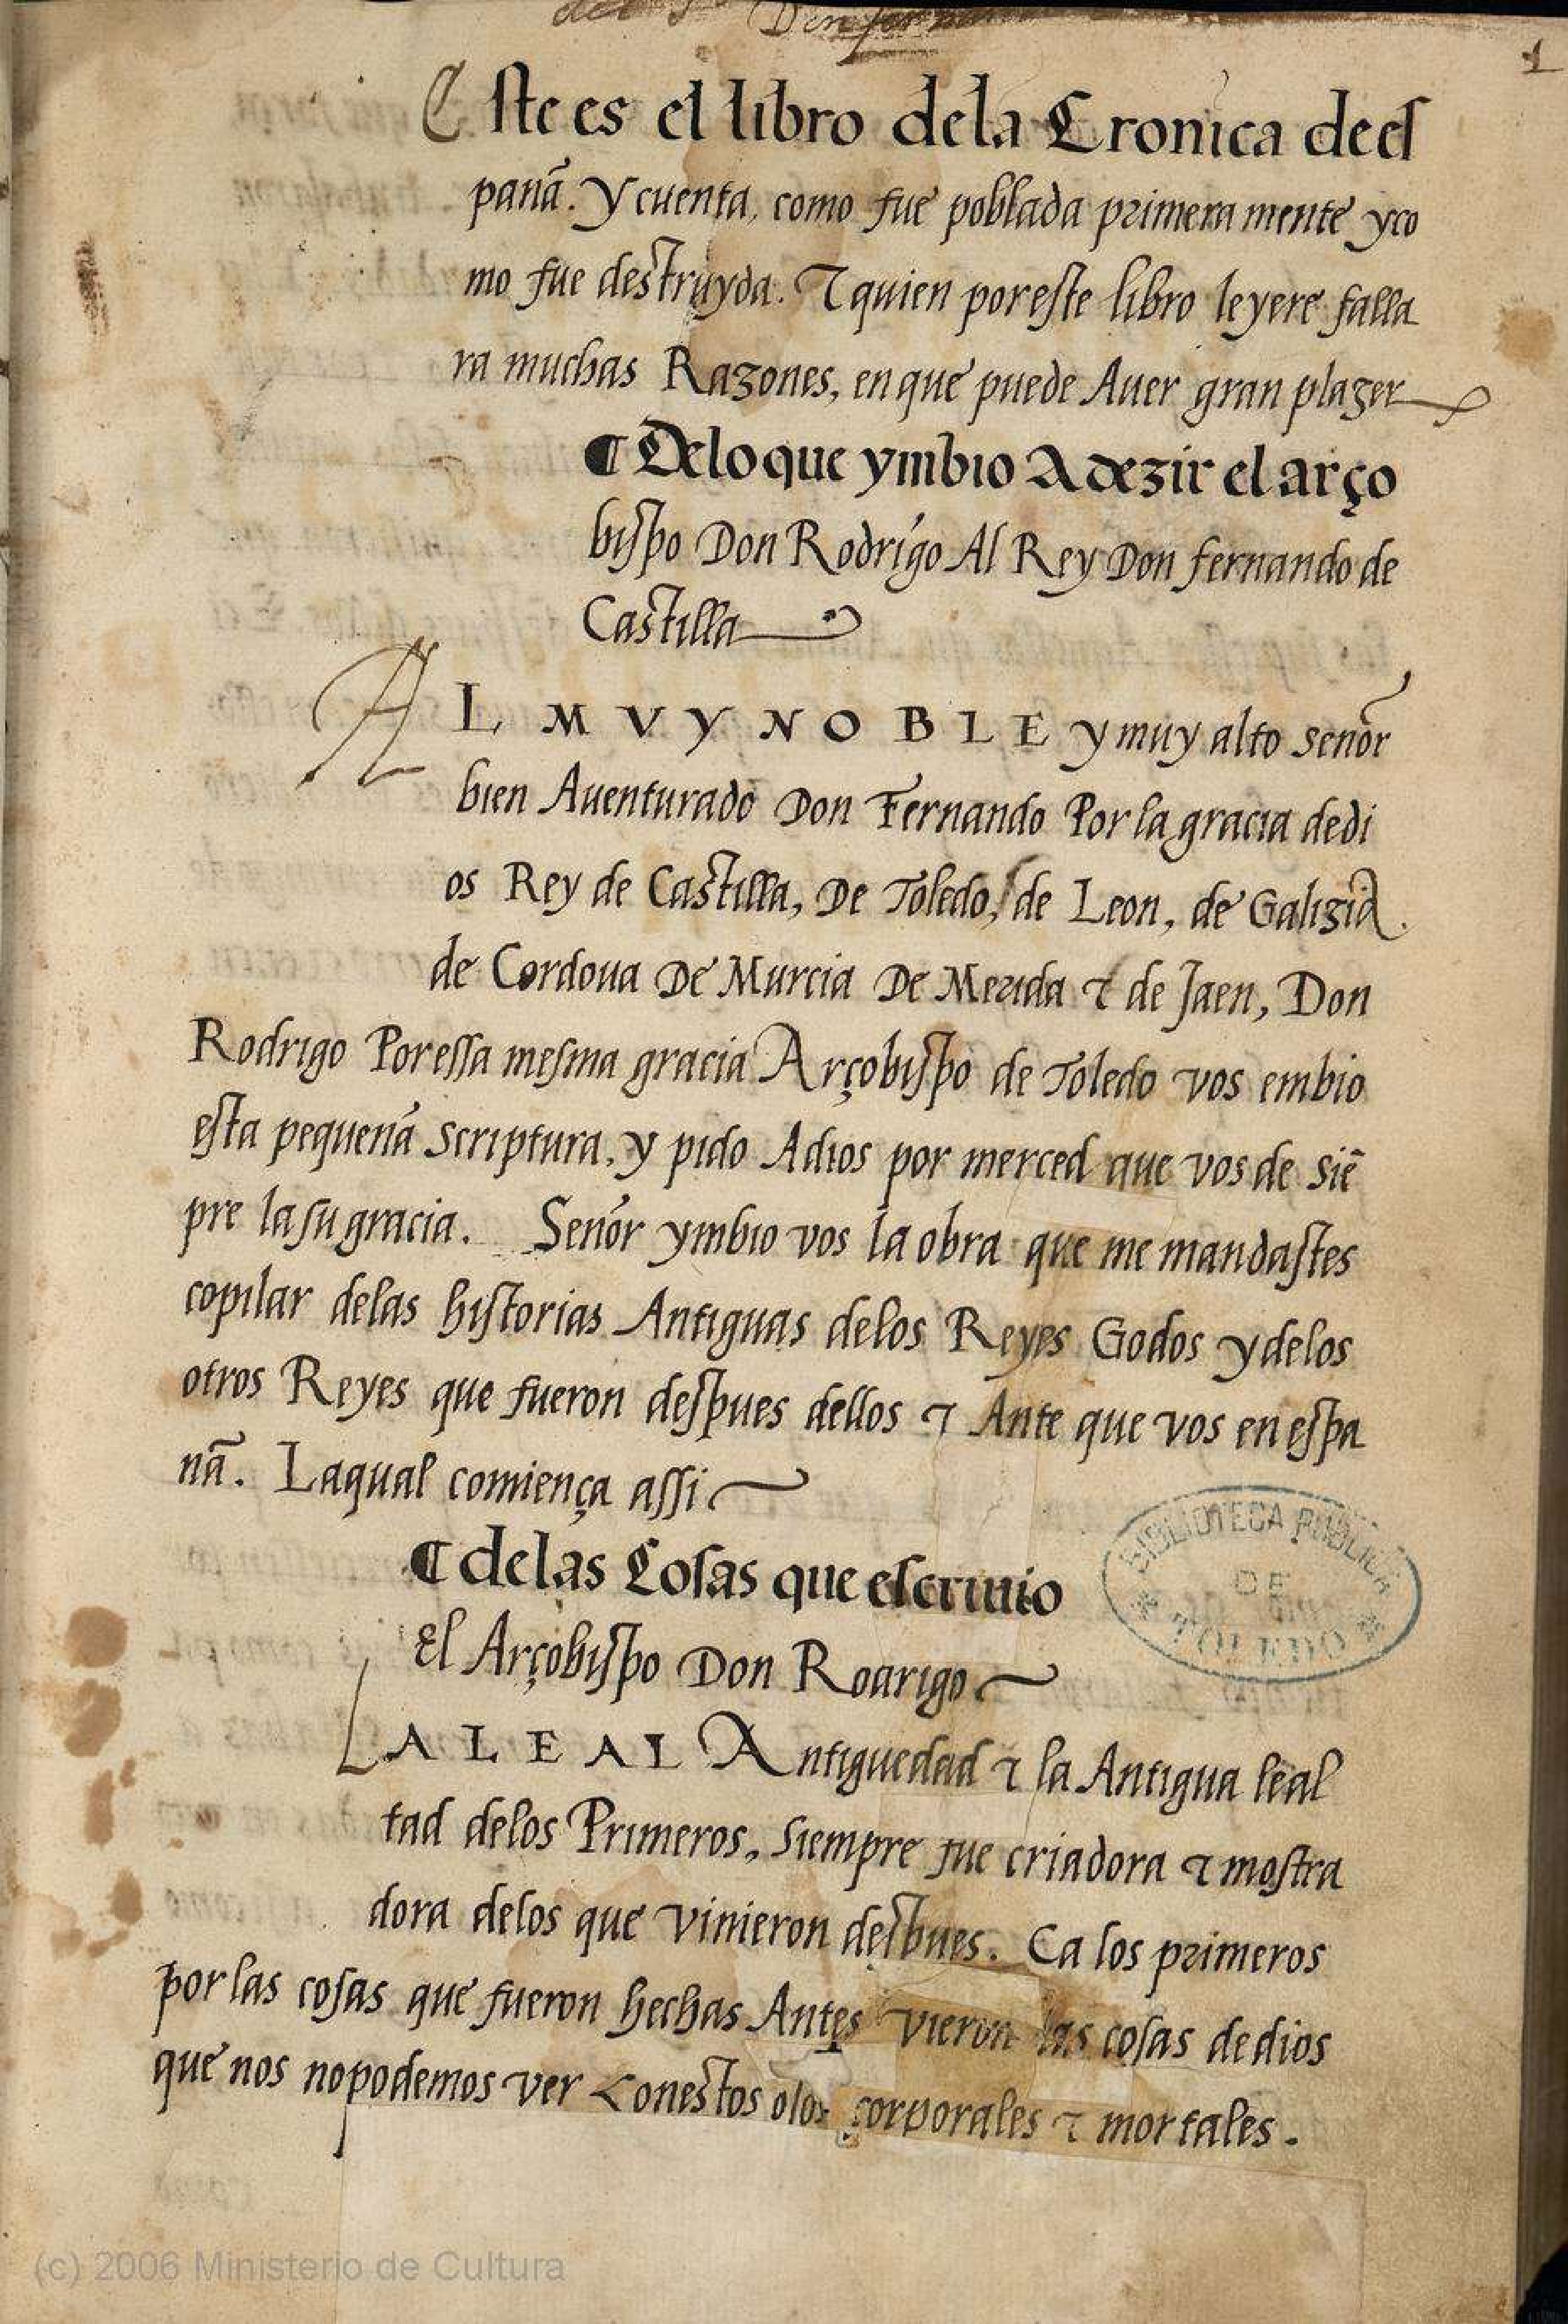 1
Este es el libro dela Cronica dees
panã. Y cuenta, como fue poblada primera mente yco
mo fue destruyda. τ quien poreste libro leyere falla
ra muchas Razones, en que puede Auer gran plazer
¶ Delo que ymbio A dezir el arço
bispo Don Rodrigo Al Rey Don fernando de
Castilla
AL MVY NOBLE y muy alto señor
bien Auenturado Don Fernando Por la gracia de di
os Rey de Castilla, De Toledo, de Leon, de Galizia.
de Cordoua De Murcia De Merida τ de Jaen, Don
Rodrigo Por essa mesma gracia Arçobispo de Toledo vos embio
esta pequenã scriptura, y pido Adios por merced que vos de siẽ
pre la su gracia. Señor ymbio vos la obra que me mandastes
copilar delas historias Antiguas delos Reyes Godos y delos
otros Reyes que fueron despues dellos τ Ante que vos en espa
nã. Laqual comiença assi
¶ delas Cosas que escriuio
El Arçobispo Don Rodrigo
LA LEAL Antiguedad τ la Antigua leal
tad delos Primeros, siempre fue criadora τ mostra
dora delos que vinieron despues. Ca los primeros
por las cosas que fueron hechas Antes vieron las cosas de dios
que nos no podemos ver Conestos olos corporales τ mortales.
BIBLIOTECA PUBLICA
DE
TOLEDO
(c) 2006 Ministerio de Cultura